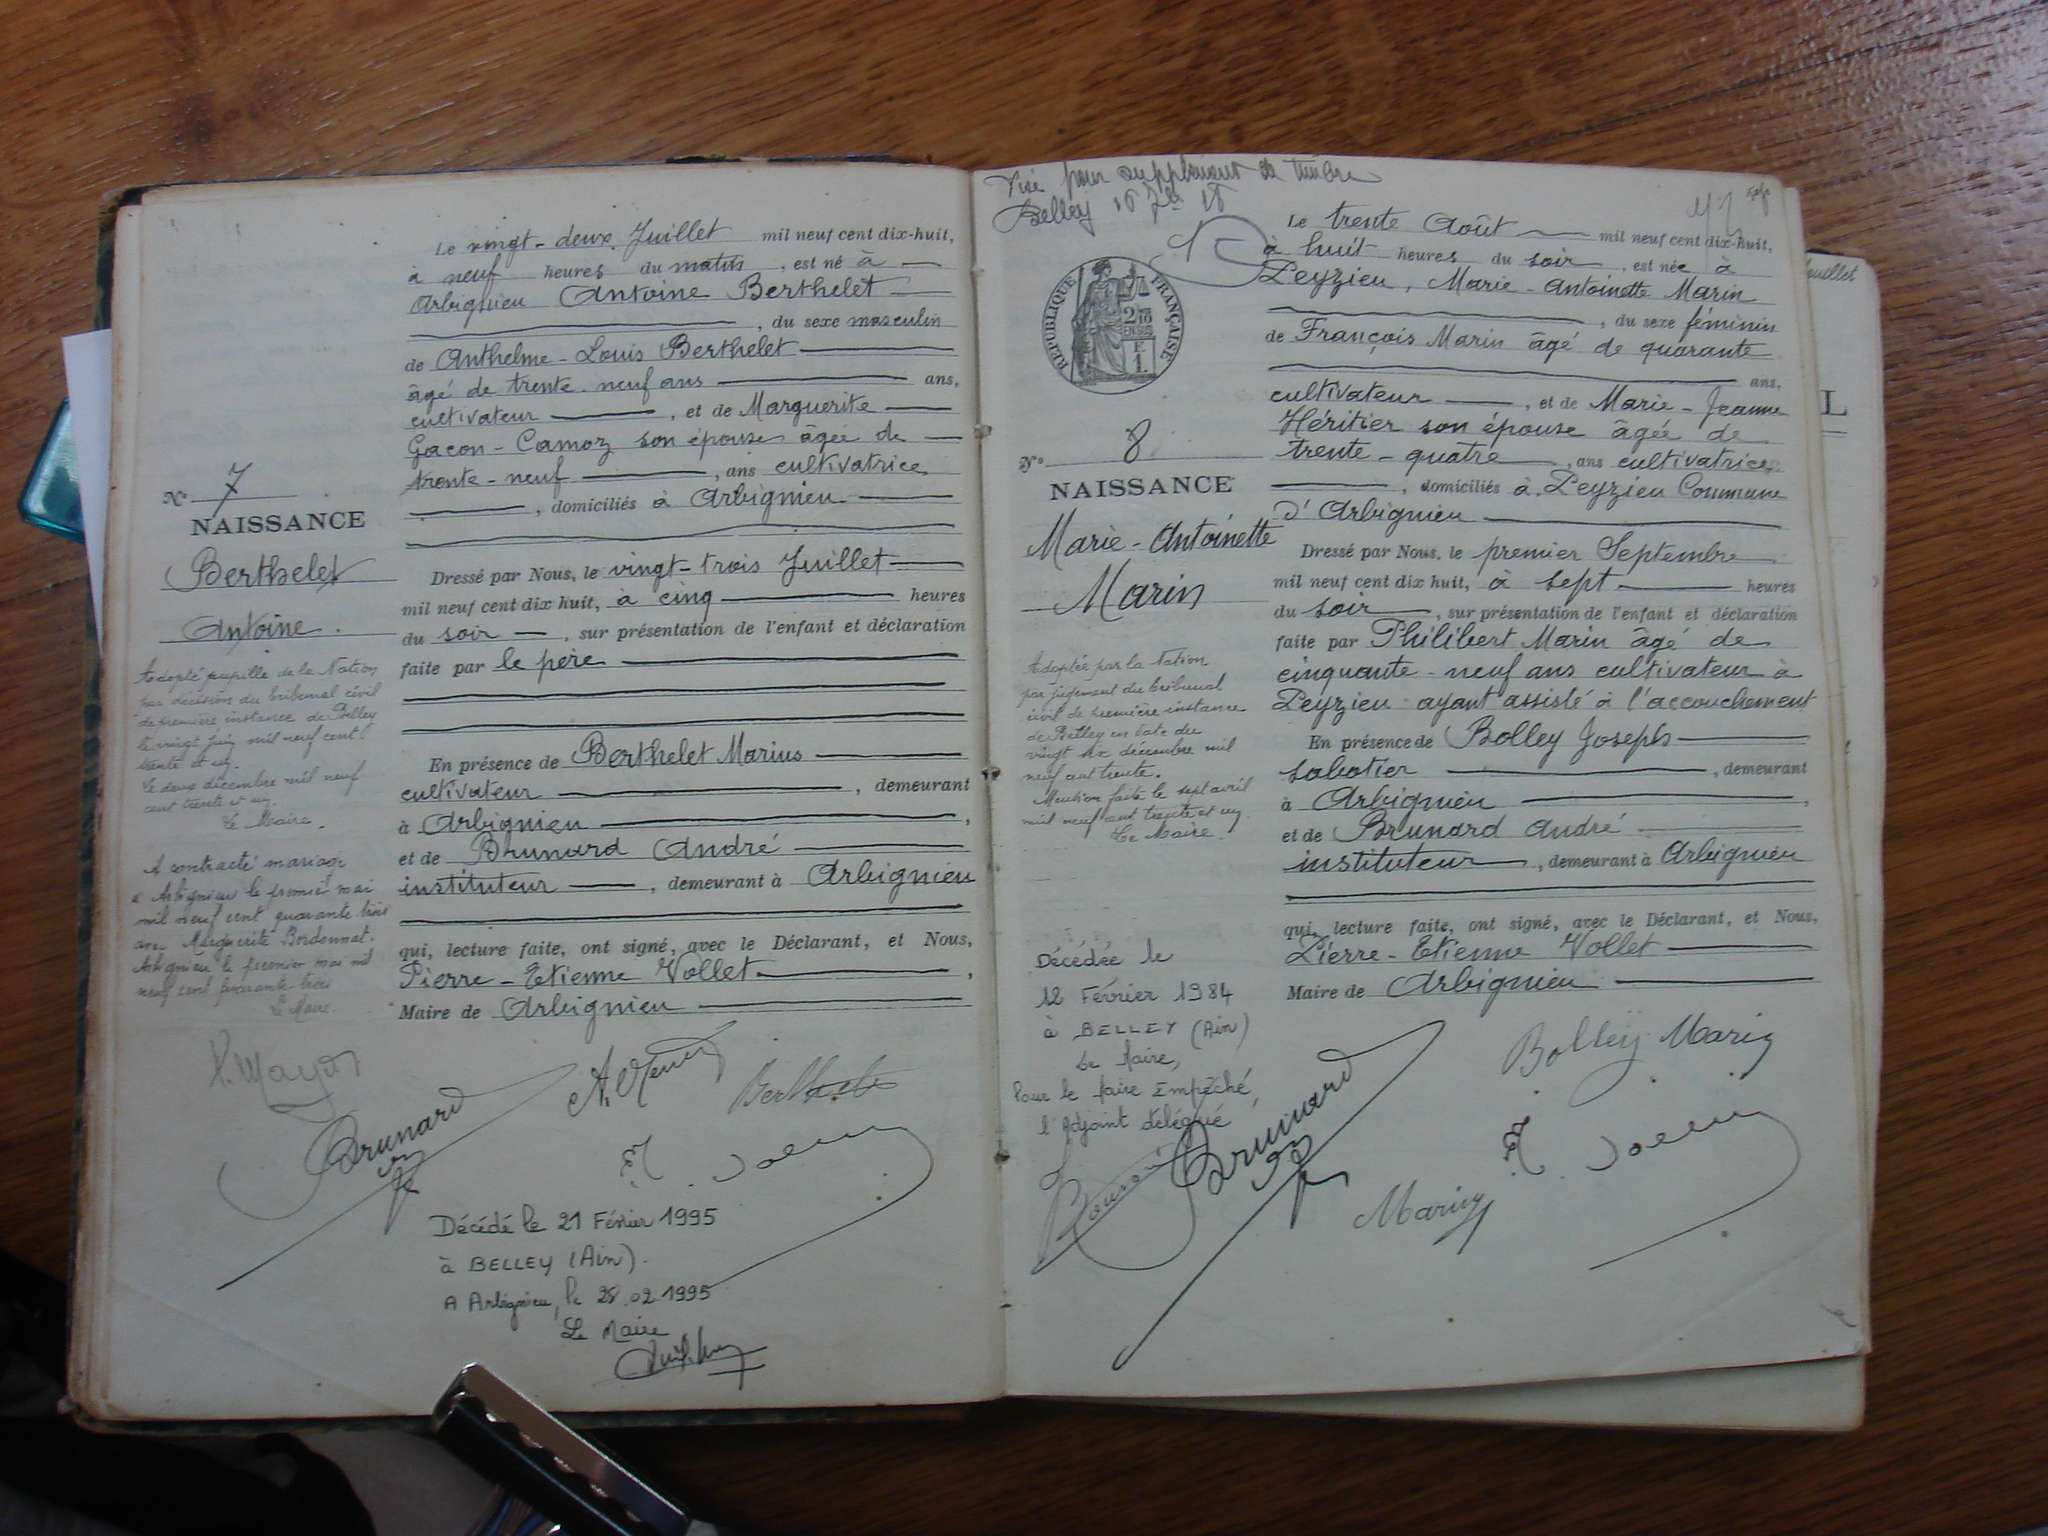 Le vingt-deux Juillet mil neuf cent dix-huit,
à neuf heures du matin, est né à
Arbignieu Antoine Berthelet
, du sexe masculin
de Anthelme-Louis Berthelet
âgé de trente-neuf ans ans,
cultivateur, et de Marguerite
Gacon-Camoz son épouse âgée de
trente-neuf, ans cultivatrice
, domiciliés à Arbignieu
Nº 7
NAISSANCE
Berthelet
Antoine.
Dressé par Nous, le vingt-trois Juillet
mil neuf cent dix huit, à cinq heures
du soir, sur présentation de l'enfant et déclaration
faite par le père
En présence de Berthelet Marius
cultivateur, demeurant
à Arbignieu,
et de Brunard André
instituteur, demeurant à Arbignieu
qui, lecture faite, ont signé, avec le Déclarant, et Nous,
Pierre-Etienne Vollet,
Maire de Arbignieu
Adopté pupille de la Nation
par décision du tribunal civil
de première instance de Belley
le vingt juin mil neuf cent
trente et un.
Le deux décembre mil neuf
cent trente et un.
Le Maire.
A contracté mariage
à Arbignieu le premier mai
mil neuf cent quarante trois
avec Marguerite Bordonnat.
Arbignieu le premier mai mil
neuf cent quarante-trois
Le Maire.
Brunard
Décédé le 21 Février 1995
à BELLEY (Ain).
A Arbignieu, le 28.02 1995
Le Maire
Visé pour supplément de timbre
Belley
Le trente Août mil neuf cent dix-huit,
à huit heures du soir, est née à
Peyzieu, Marie-Antoinette Marin
, du sexe féminin
de François Marin âgé de quarante
ans,
cultivateur, et de Marie-Jeanne
Héritier son épouse âgée de
trente-quatre, ans cultivatrice
, domiciliés à Peyzieu Commune
d'Arbignieu
RÉPUBLIQUE FRANÇAISE
Nº 8
NAISSANCE
Marie-Antoinette
Marin
Dressé par Nous, le premier Septembre
mil neuf cent dix huit, à sept heures
du soir, sur présentation de l'enfant et déclaration
faite par Philibert Marin âgé de
cinquante-neuf ans cultivateur à
Peyzieu ayant assisté à l'accouchement
En présence de Bolley Joseph
sabotier, demeurant
à Arbignieu,
et de Brunard André
instituteur, demeurant à Arbignieu
qui, lecture faite, ont signé, avec le Déclarant, et Nous,
Pierre-Etienne Vollet
Maire de Arbignieu
Adoptée par la Nation
par jugement du tribunal
civil de première instance
de Belley en date du
vingt six décembre mil
neuf cent trente.
Mention faite le sept avril
mil neuf cent trente et un
Le Maire.
Décédée le
12 Février 1984
à BELLEY (Ain)
Le Maire,
Pour le Maire Empêché,
l'Adjoint délégué
Brunard
Bolley Marin
Marin